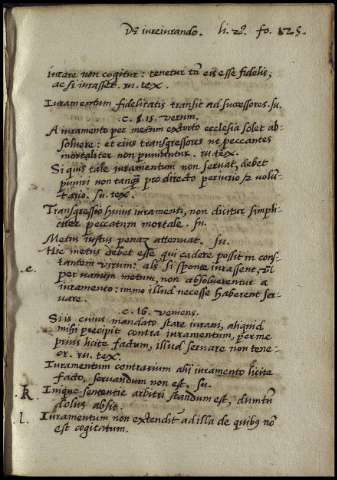 De iureiurando. li. 2º. fo. 125.
iurare non cogitur: tenetur tn̄ eis esse fidelis,
ac si iurasset. in tex.
Iuramentum fidelitatis transit ad sucessores. su.
c. §. 15. verum.
A iuramento per metum extorto ecclesia solet ab-
soluere: et eius transgressores ut peccantes
mortaliter non puniuntur. in tex.
Si quis tale iuramentum non seruat, debet
puniri non tanq̄ pro directo periurio sʒ volun
tario. su. tex.
Transgressio huius iuramenti, non dicitur simpli-
citer peccatum mortale. su.
Metus iustus penam attenuat. su.
Hic metus debet esse qui cadere possit in cons-
e. tantem virum: als si sponte iurassent, vl
per vanum metum, non absoluerentur a
iuramento: imme illud necesse haberent ser-
uare.
c. 16. veniens.
Si is cuius mandato stare iuraui, aliquid
mihi precipit contra iuramentum, per me
prius licite factum, illud seruare non tene-
or. in tex.
Iuramentum contrarium alii iuramento licite
facto, seruandum non est. su.
K. Inique sententie arbitri standum est, dum tn̄
dolus absit.
l. Iuramentum non extendit̄ ad illa de quibꝰ nō
est cogitatum.